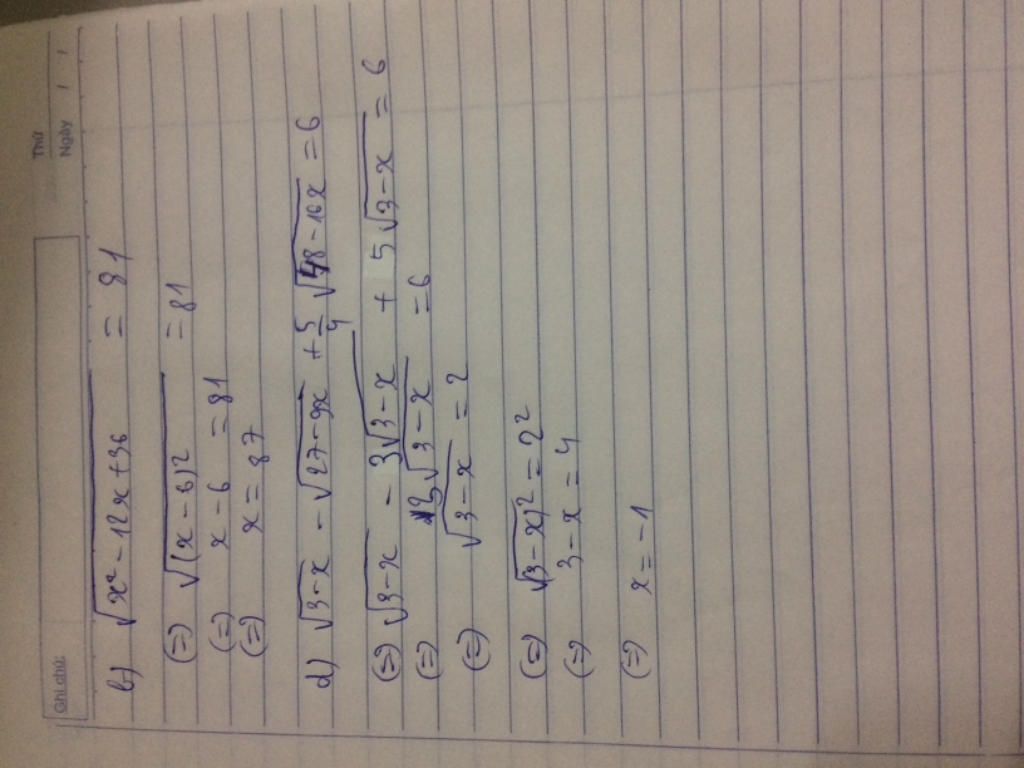 Thứ
Ngày / /
Ghi chú:
b) √(x² - 12x + 36) = 81
(=) √((x - 6)²) = 81
(=) x - 6 = 81
(=) x = 87
d) √(3 - x) - √(27 - 9x) + 5/4 √(48 - 16x) = 6
(=) √(3 - x) - 3√(3 - x) + 5√(3 - x) = 6
(=) 3√(3 - x) = 6
(=) √(3 - x) = 2
(=) √(3 - x)² = 2²
(=) 3 - x = 4
(=) x = -1